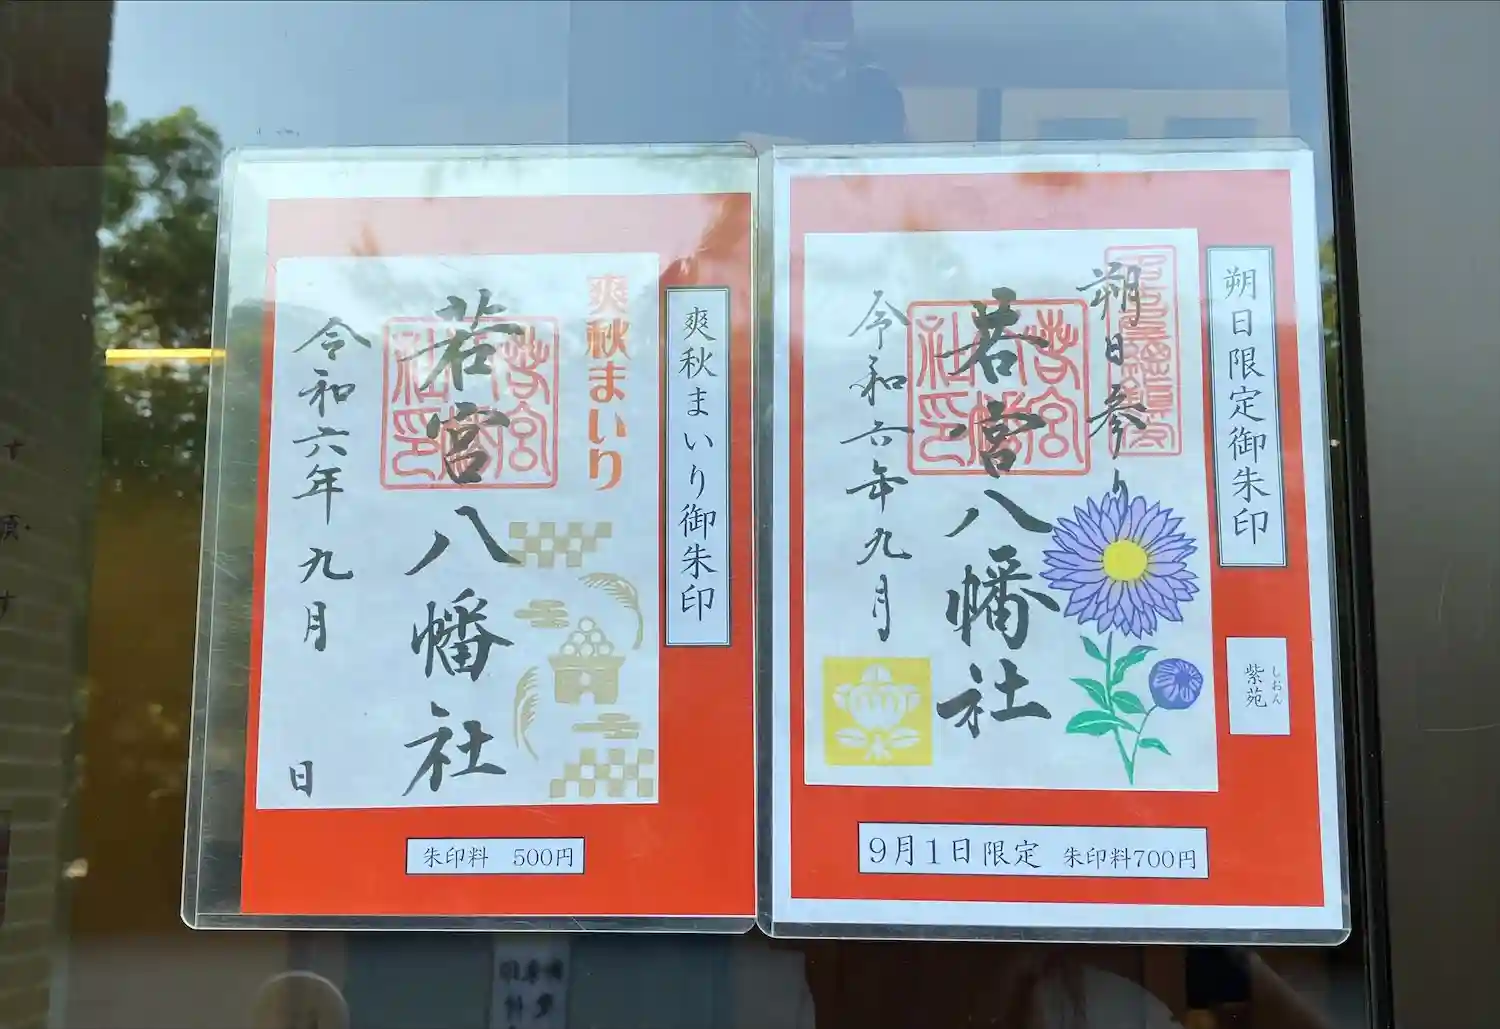 爽秋まいり御朱印
爽秋まいり
若宮八幡社
令和六年九月
日
朱印料 500円
朔日限定御朱印
紫苑
しおん
朔日参り
若宮八幡社
令和六年九月
9月1日限定 朱印料700円